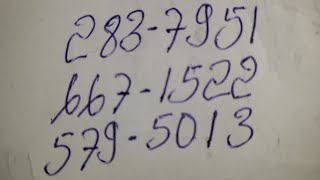 283-7951
667-1522
579-5013